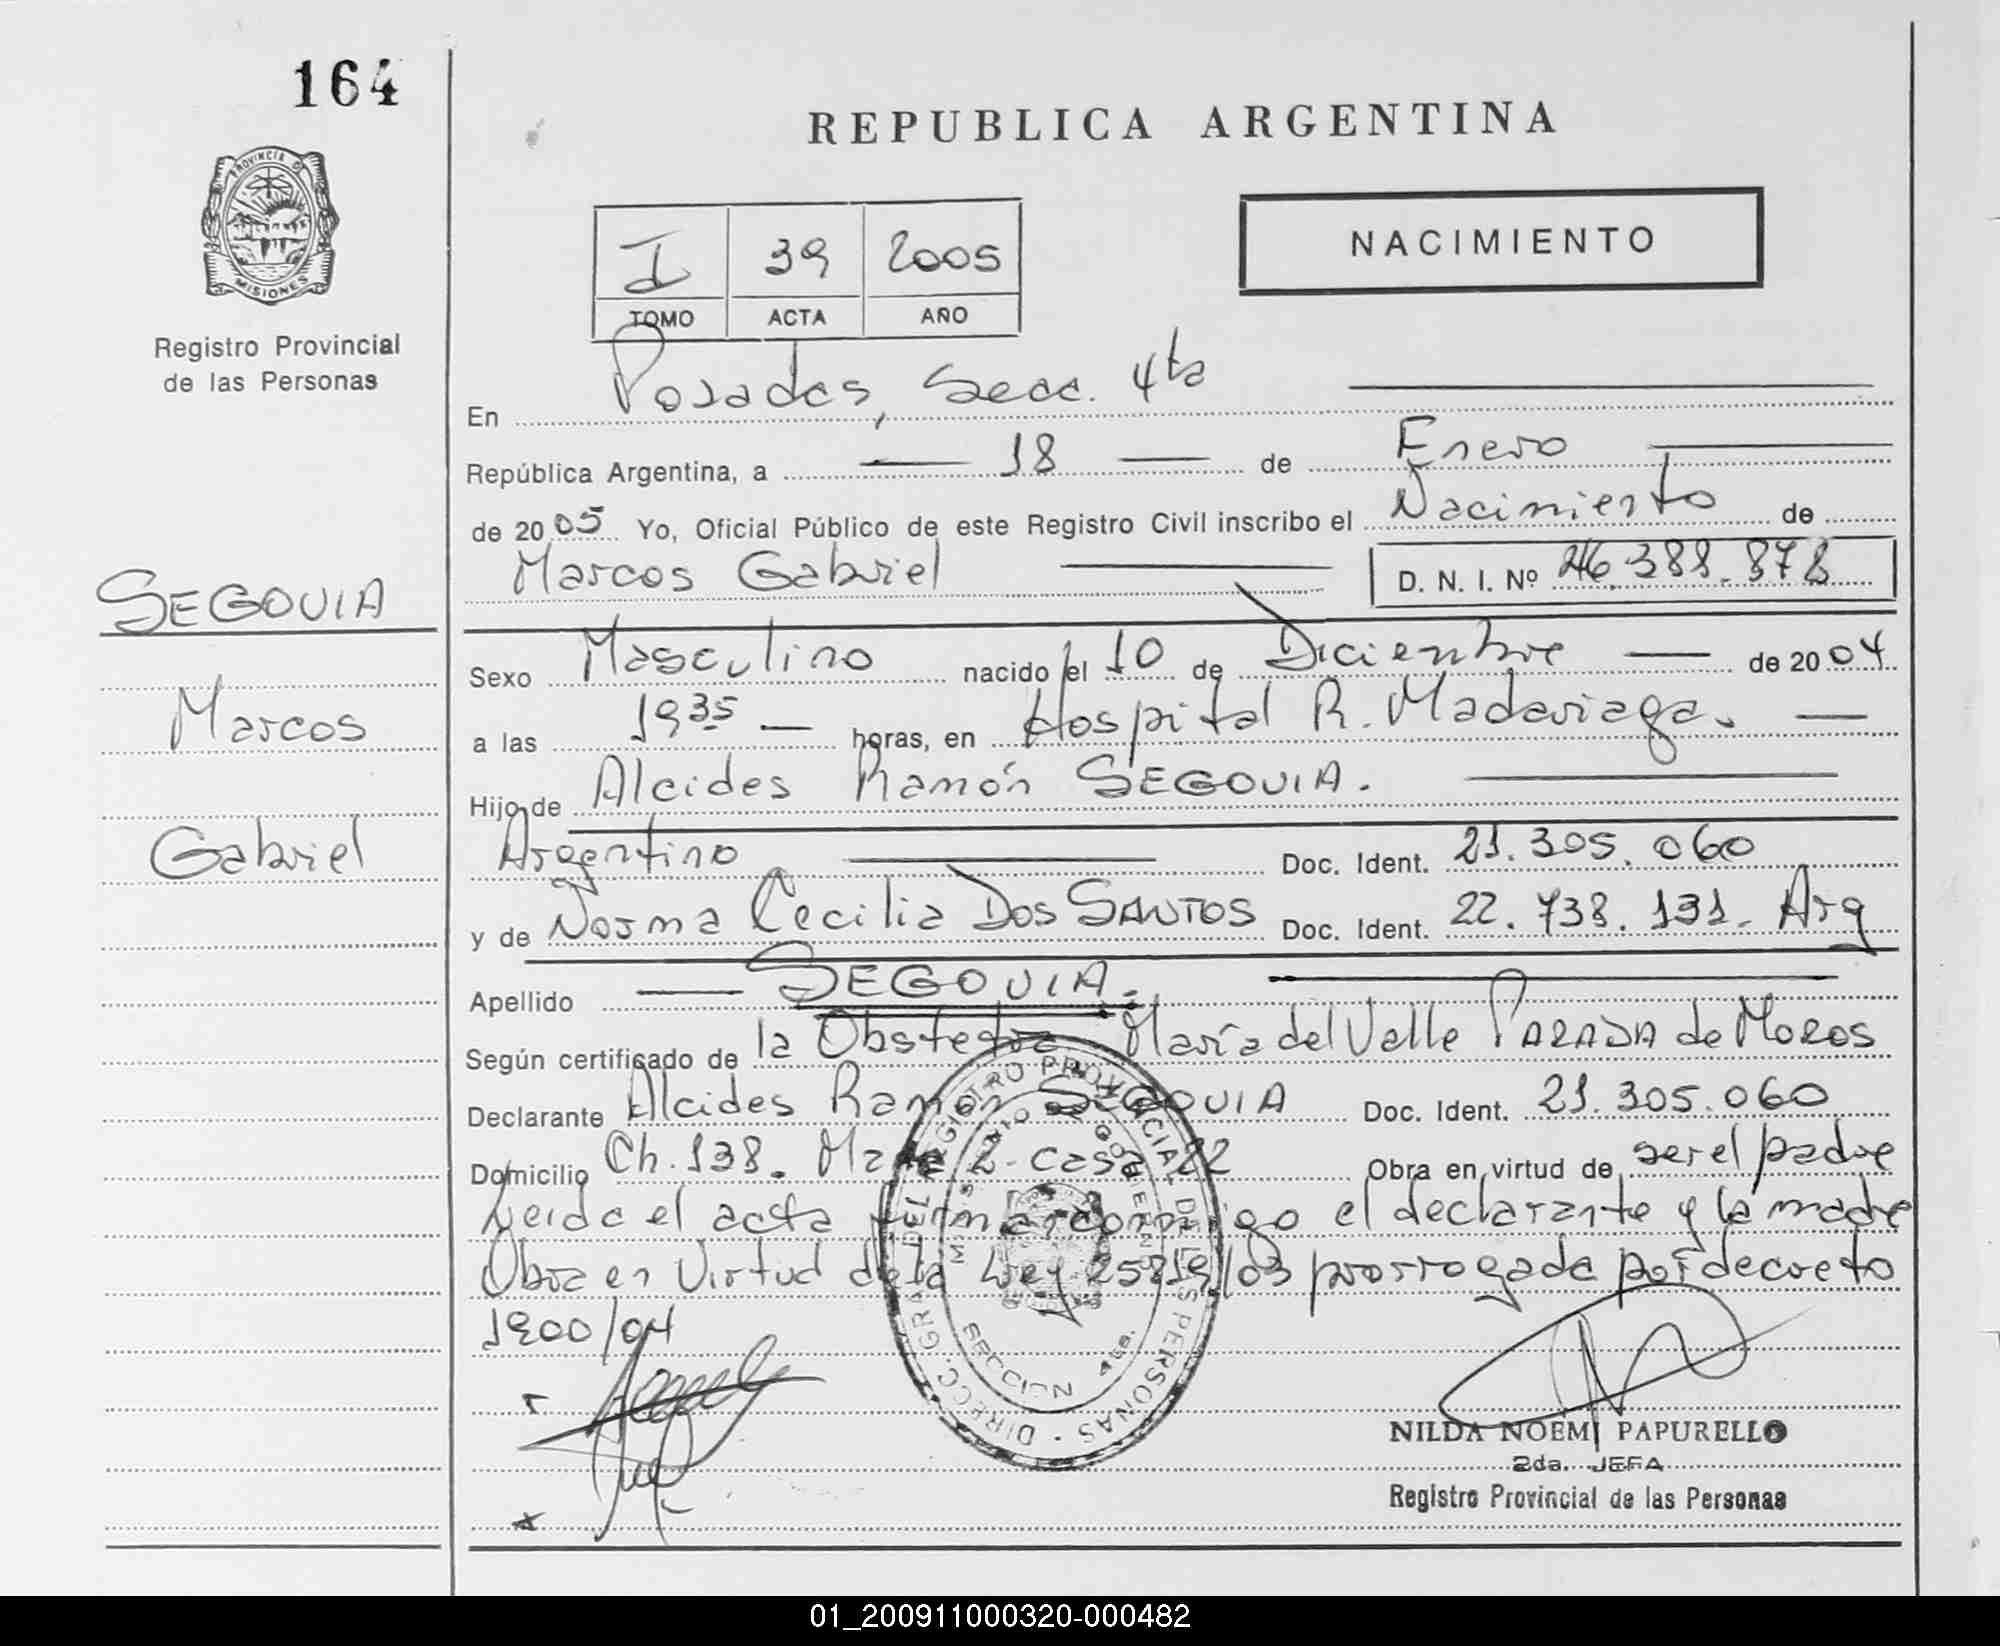 164
REPUBLICA ARGENTINA
PROVINCIA D
MISIONES
Registro Provincial
de las Personas
I 39 2005
TOMO ACTA AÑO
NACIMIENTO
En Posadas, Secc. 4ta
República Argentina, a 18 de Enero
de 2005 Yo, Oficial Público de este Registro Civil inscribo el Nacimiento de
Marcos Gabriel D. N. I. Nº 46.388.878
SEGOVIA
Marcos
Gabriel
Sexo Masculino nacido el 10 de Diciembre de 2004
a las 1935 horas, en Hospital R. Madariaga.
Hijo de Alcides Ramón SEGOVIA.
Argentino Doc. Ident. 21.305.060
y de Norma Cecilia DOS SANTOS Doc. Ident. 22.738.131. Arg
Apellido SEGOVIA.
Según certificado de la Obstetra María del Valle PARADA de MOROS
Declarante Alcides Ramón SEGOVIA Doc. Ident. 21.305.060
Domicilio Ch. 138. Mz 2 casa 22 Obra en virtud de ser el padre
Leida el acta firman conmigo el declarante y la madre
Obra en Virtud de la Ley 25819/03 prorrogada por decreto
1900/04
DIRECC. GRAL. DEL REGISTRO PROVINCIAL DE LAS PERSONAS
MINISTERIO DE GOBIERNO
SECCION 4ta.
NILDA NOEMI PAPURELLO
2da. JEFA
Registro Provincial de las Personas
01_200911000320-000482